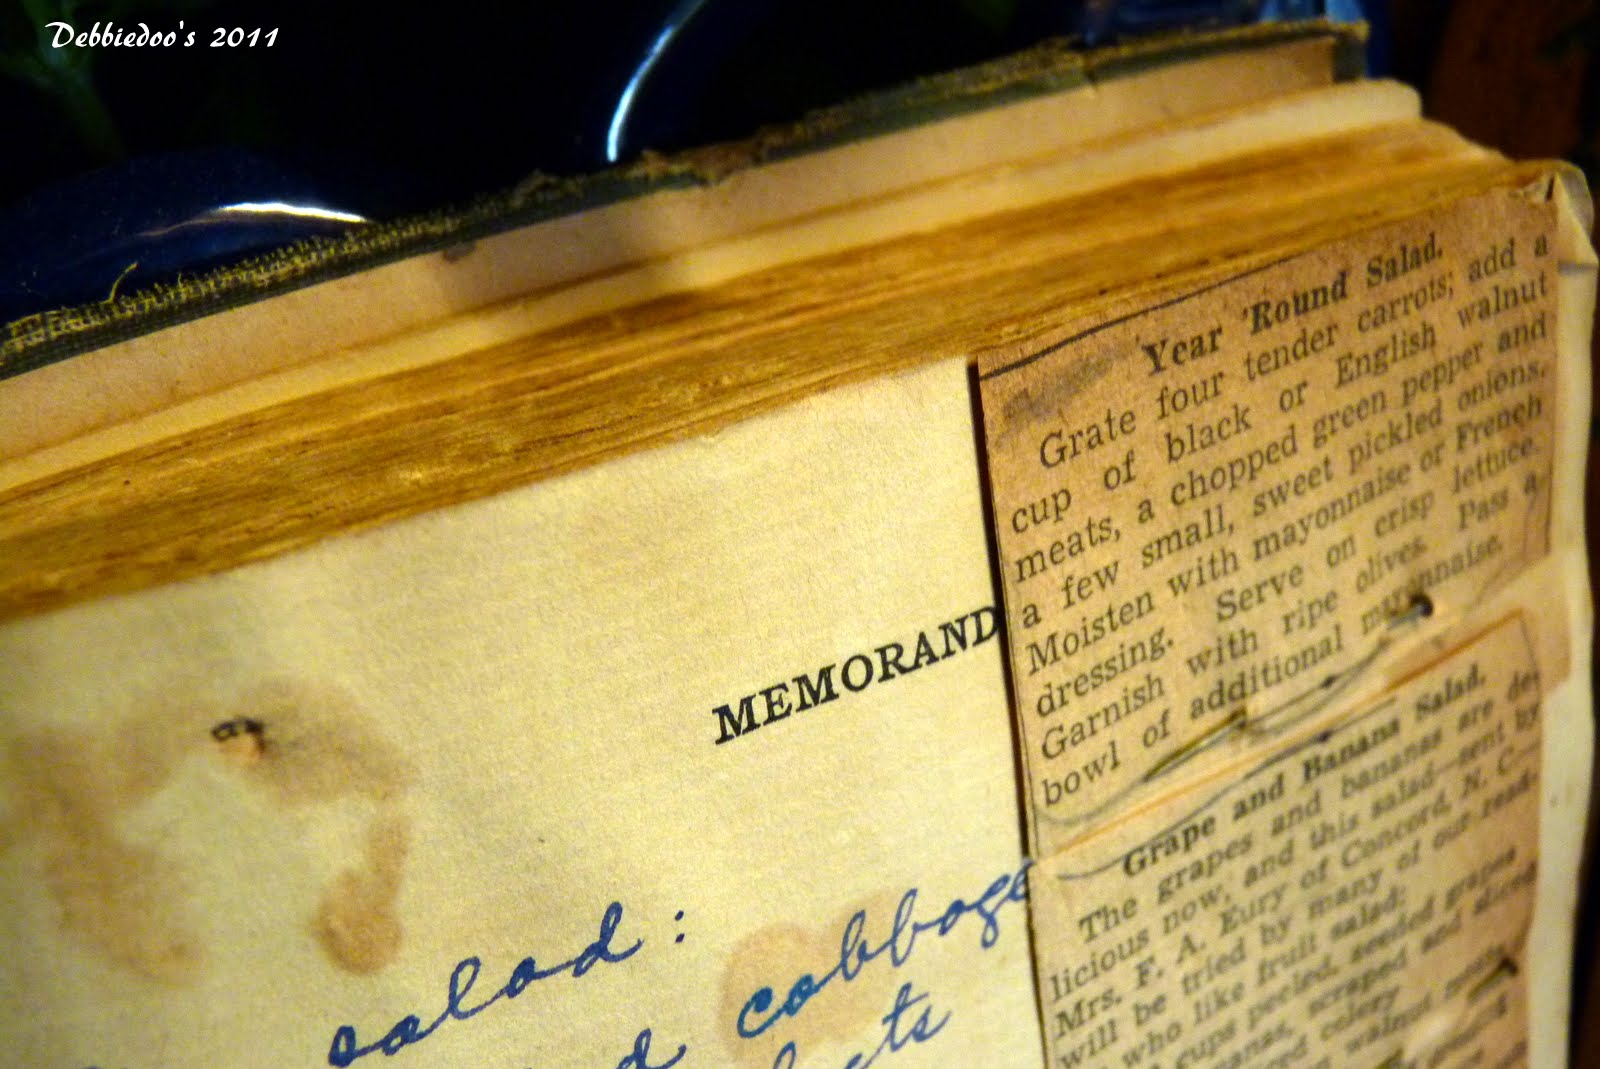 Debbiedoo's 2011
Year 'Round Salad.
Grate four tender carrots; add a
cup of black or English walnut
meats, a chopped green pepper and
a few small, sweet pickled onions.
Moisten with mayonnaise or French
dressing. Serve on crisp lettuce.
Garnish with ripe olives. Pass a
bowl of additional mayonnaise.
Grape and Banana Salad.
The grapes and bananas are de-
licious now, and this salad—sent by
Mrs. F. A. Eury of Concord, N. C.—
will be tried by many of our read-
who like fruit salad:
cups peeled, seeded grapes
scraped and sliced
celery
walnut meats
MEMORAND
salad:
cabbage